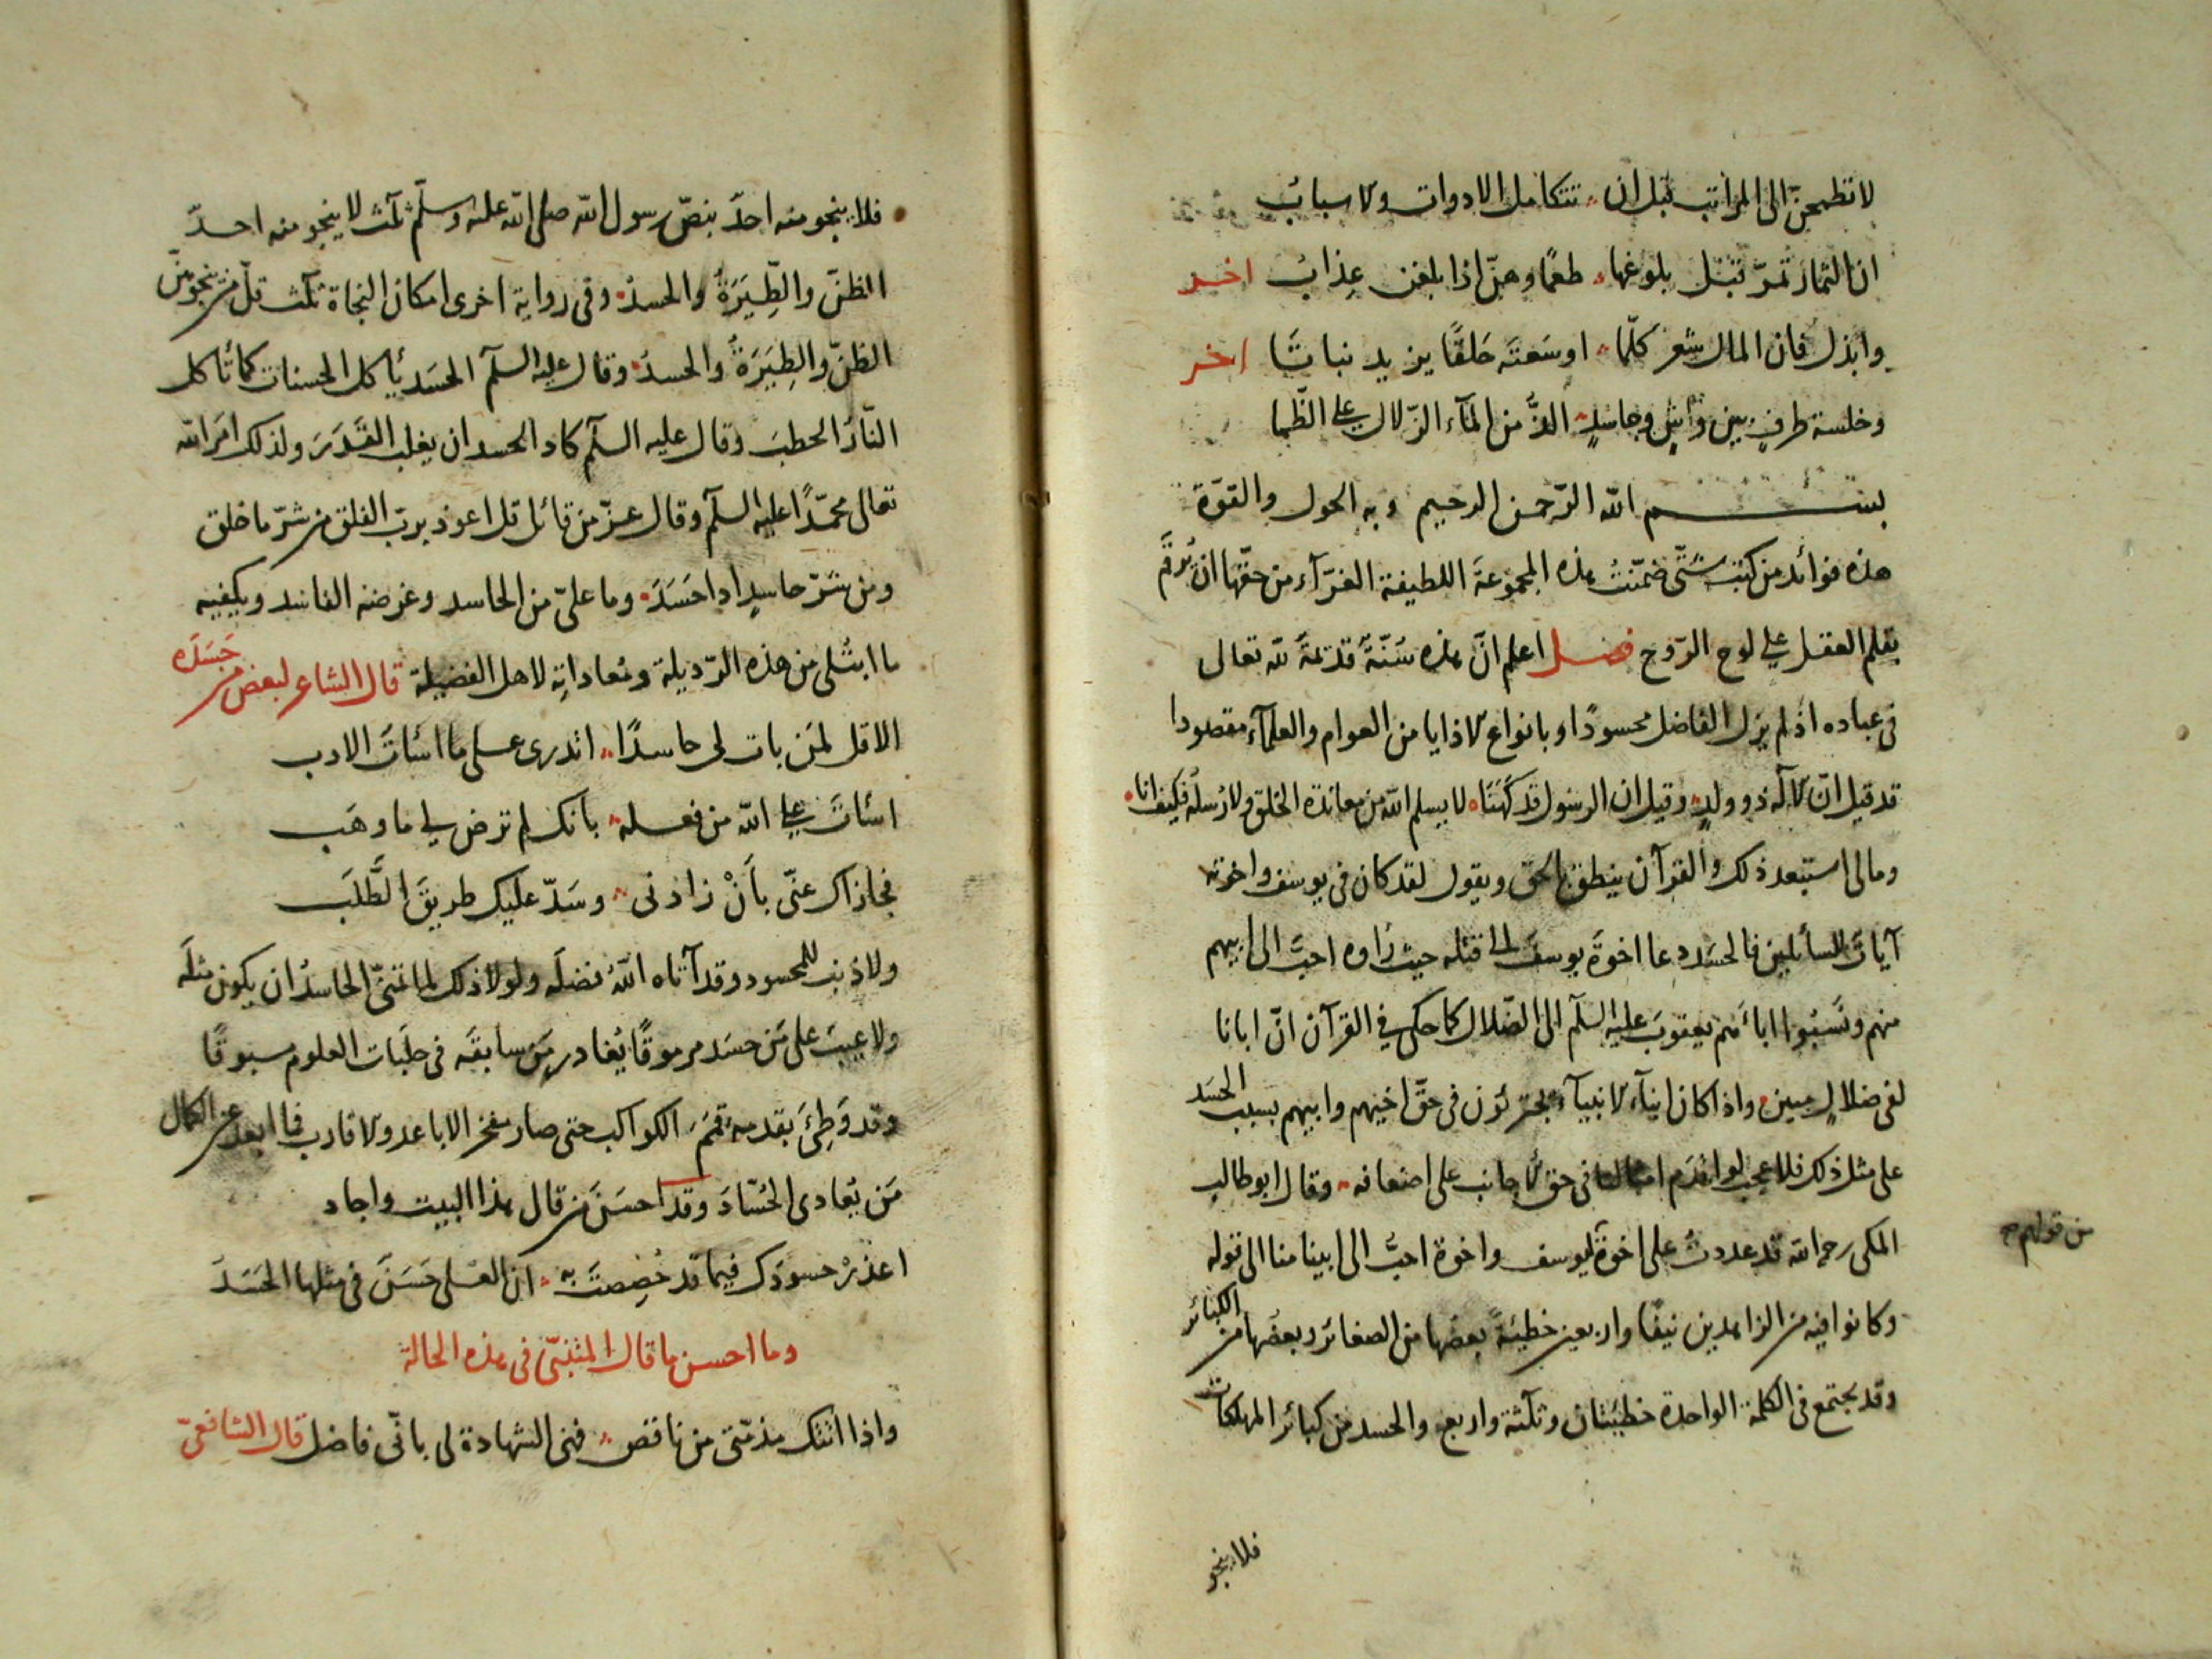 لا تطمحنّ الى المراتب قبل ان تتكامل الادوات والاسباب
ان الثمار تمرّ قبل بلوغها طعمًا وهنّ اذا بلغن عذاب اخر
وابذل فان المال شعر كلّما اوسعته حلقًا يزيد نباتًا اخر
وخلسة طرفٍ بين واشٍ وحاسدٍ الذّ من الماء الزلال على الظما
بسم الله الرّحمن الرحيم وبه الحول والقوّة
هذه فوائد من كتب شتّى ضمّنت هذه المجموعة اللطيفة الغرّاء من حقّها ان يُرقم
بقلم العقل على لوح الرّوح فصل اعلم انّ هذه سُنّة قديمة لله تعالى
فى عباده اذ لم يزل الفاضل محسودًا وبانواع الاذايا من العوام والعلماء مقصودا
قد قيل انّ الاله ذو ولدٍ وقيل ان الرسول قد كهنا لا يسلم الله من معاندة الخلق ولا رسله فكيف انا
ومالى استبعد ذلك والقرآن ينطق بالحق ويقول لقد كان فى يوسف واخوته
آيات للسائلين فالحسد دعا اخوة يوسف الى قتله حيث رأوه احبّ الى ابيهم
منهم ونسبوا اباهم يعقوب عليه السلم الى الضلال كما حكى فى القرآن انّ ابانا
لفى ضلالٍ مبين واذا كان ابناء الانبياء يجترؤن فى حقّ اخيهم وابيهم بسبب الحسد
على مثل ذلك فلا عجب لو اقدم امثالنا فى حق الاجانب على اضعافه وقال ابو طالب
المكى رحمه الله قد عددت على اخوة يوسف واخوة احبّ الى ابينا منا الى قوله
من قولهم
وكانوا فيه من الزاهدين نيفًا واربعين خطيئة بعضها من الصغائر وبعضها من الكبائر
وقد يجتمع فى الكلمة الواحدة خطيئتان وثلثة واربع والحسد من كبائر المهلكات
فلا ينجو
فلا ينجو منه احدٌ بنصّ رسول الله صلى الله عليه وسلّم ثلث لا ينجو منه احدٌ
الظنّ والطِيَرَةُ والحسدُ وفى رواية اخرى امكان النجاة ثلث قلّ من ينجو منّ
الظنّ والطِيَرَةُ والحسدُ وقال عليه السلم الحسد يأكل الحسنات كما تأكل
النّارُ الحطبَ وقال عليه السلم كاد الحسد ان يغلب القَدَرَ ولذلك امر الله
تعالى محمّدًا عليه السلم وقال عزّ من قائل قل اعوذ بربّ الفلق من شرّ ما خلق
ومن شرّ حاسدٍ اذا حَسَدَ وما علىّ من الحاسد وغرضه الفاسد ويكفيه
ما ابتلى من هذه الرّذيلة ومعاداته لاهل الفضيلة قال الشاعر لبعض من حَسَدَه
الا قل لمَن بات لى حاسدًا اتدرى على ما اسأت الادب
اسأت على الله من فعله بانك لم ترض لى ما وهب
فجازاك عنّى بأنْ زادنى وسَدّ عليك طريق الطّلب
ولا ذنب للمحسود وقد آتاه الله فضله ولولا ذلك لما تمنّى الحاسد ان يكون مثلَه
ولا عيب على مَن حسد مرموقًا يغادر مَن سابقَه فى حلبات العلوم مسبوقًا
وقد وَطِئَ بقدمه قممَ الكواكب حتى صار مفخر الاباعد والاقارب فما ابعد عن الكمال
مَن يعادى الحُسّادَ وقد احسَن من قال هذا البيت واجاد
اعذرْ حسودَك فيما قد خُصِصتَ به ان العُلى حَسَنٌ فى مثلها الحَسَدُ
وما احسن ما قال المتنبّى فى هذه الحالة
واذا اتتك مذمّتى من ناقص فهى الشهادة لى بانّى فاضل قال الشافعىّ